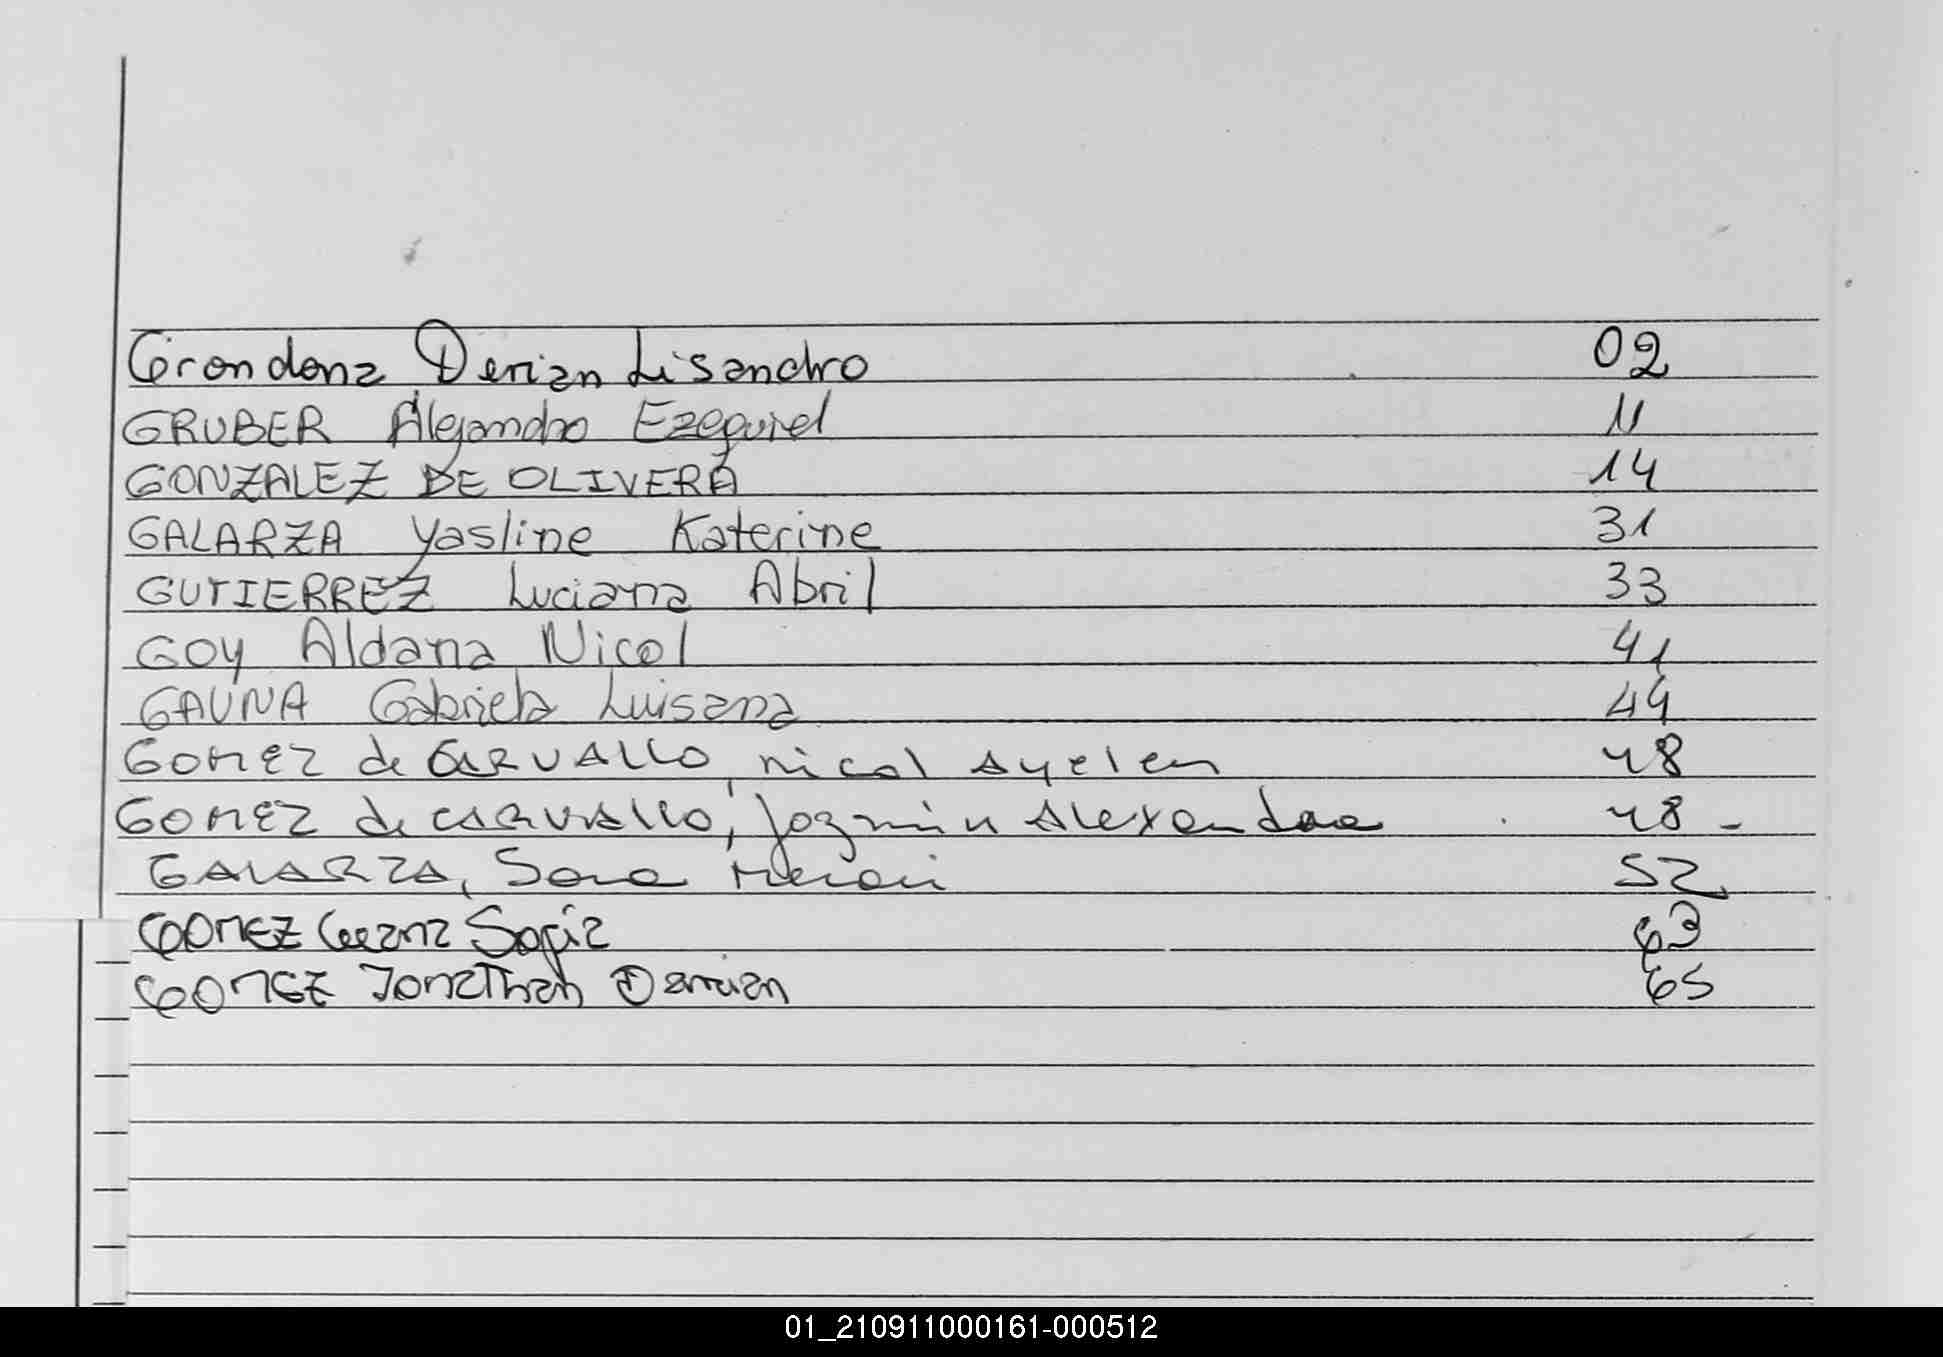 Grondona Derian Lisandro 02
GRUBER Alejandro Ezequiel 11
GONZALEZ DE OLIVERA 14
GALARZA Yasline Katerine 31
GUTIERREZ Luciana Abril 33
GOY Aldana Nicol 41
GAUNA Gabriela Luisana 44
GOMEZ de CARVALLO, Nicol Ayelen 48
GOMEZ de CARVALLO, Jazmin Alexandra 48 -
GALARZA, Sara 52
GOMEZ Sofia 63
GOMEZ Jonathan Damian 65
01_210911000161-000512